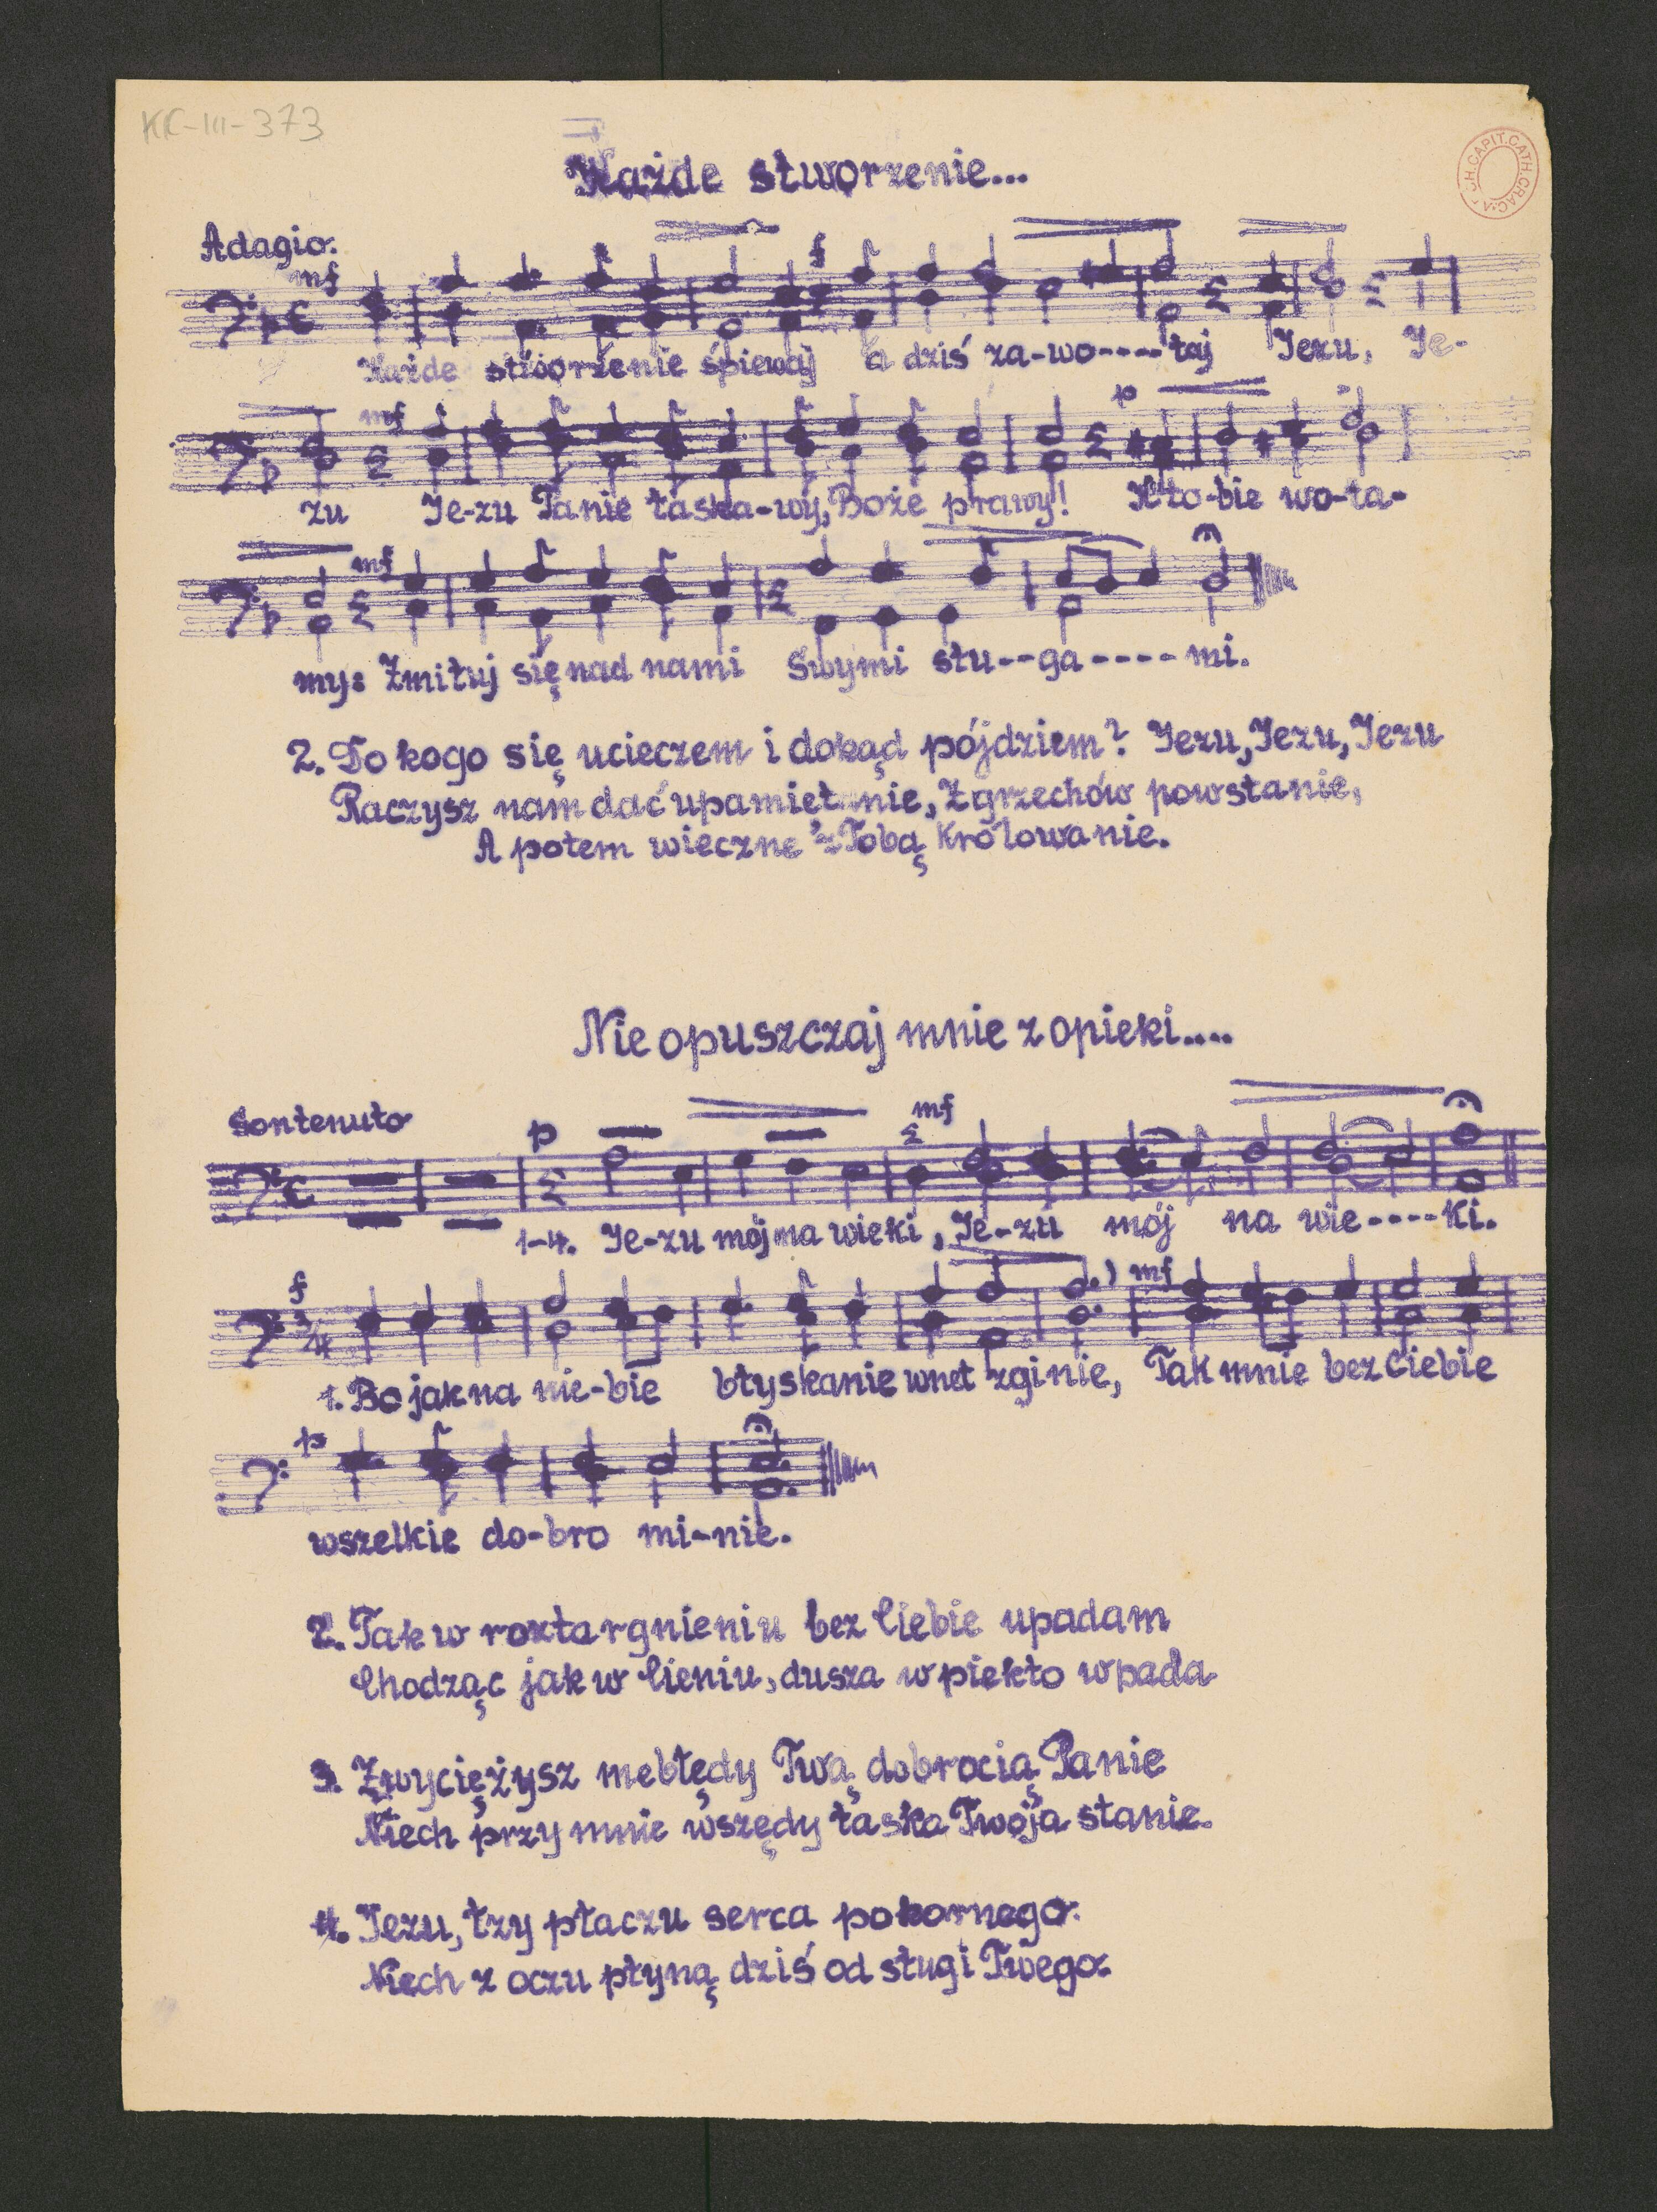 KK-III-373
ARCH.CAPIT.CATH.CRAC.
Każde stworzenie...
Adagio.
mf f
Każde stworzenie śpiewaj a dziś za-wo----łaj Jezu, Je-
mf p
zu Je-zu Panie łaska-wy, Boże prawy! K'to-bie wo-ła-
mf
my: Zmiłuj się nad nami Swymi słu--ga----mi.
2. Do kogo się ucieczem i dokąd pójdziem? Jezu, Jezu, Jezu
Raczysz nam dać upamietanie, Z grzechów powstanie,
A potem wieczne z Tobą Królowanie.
Nie opuszczaj mnie z opieki....
Sontenuto
p mf
1-4. Je-zu mój na wieki, Je-zu mój na wie----ki.
f 3/4 mf
1. Bo jak na nie-bie błyskanie wnet zginie, Tak mnie bez Ciebie
p
wszelkie do-bro mi-nie.
2. Tak w roztargnieniu bez Ciebie upadam
Chodząc jak w Cieniu, dusza w piekło wpada
3. Zwyciężysz me błędy Twą dobrocią Panie
Niech przy mnie wszędy łaska Twoja stanie.
4. Jezu, łzy płaczu serca pokornego.
Niech z oczu płyną dziś od sługi Twego.